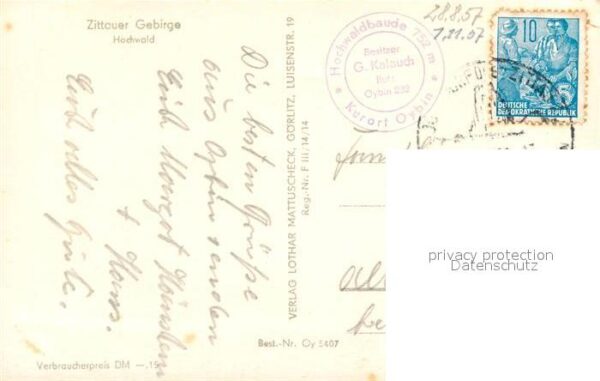 Zittauer Gebirge
Hochwald
Die besten Grüße
aus Oybin senden
Euch Margot
+ Hans.
Euch alles Gute.
Verbraucherpreis DM —.15
VERLAG LOTHAR MATTUSCHECK, GÖRLITZ, LUISENSTR. 19
Reg.-Nr. F III/14/14
Best.-Nr. Oy 5407
Hochwaldbaude 752 m
Besitzer
G. Kalauch
Ruf:
Oybin 232
* Kurort Oybin *
28.8.57
1.11.57
10
DEUTSCHE
DEMOKRATISCHE REPUBLIK
privacy protection
Datenschutz